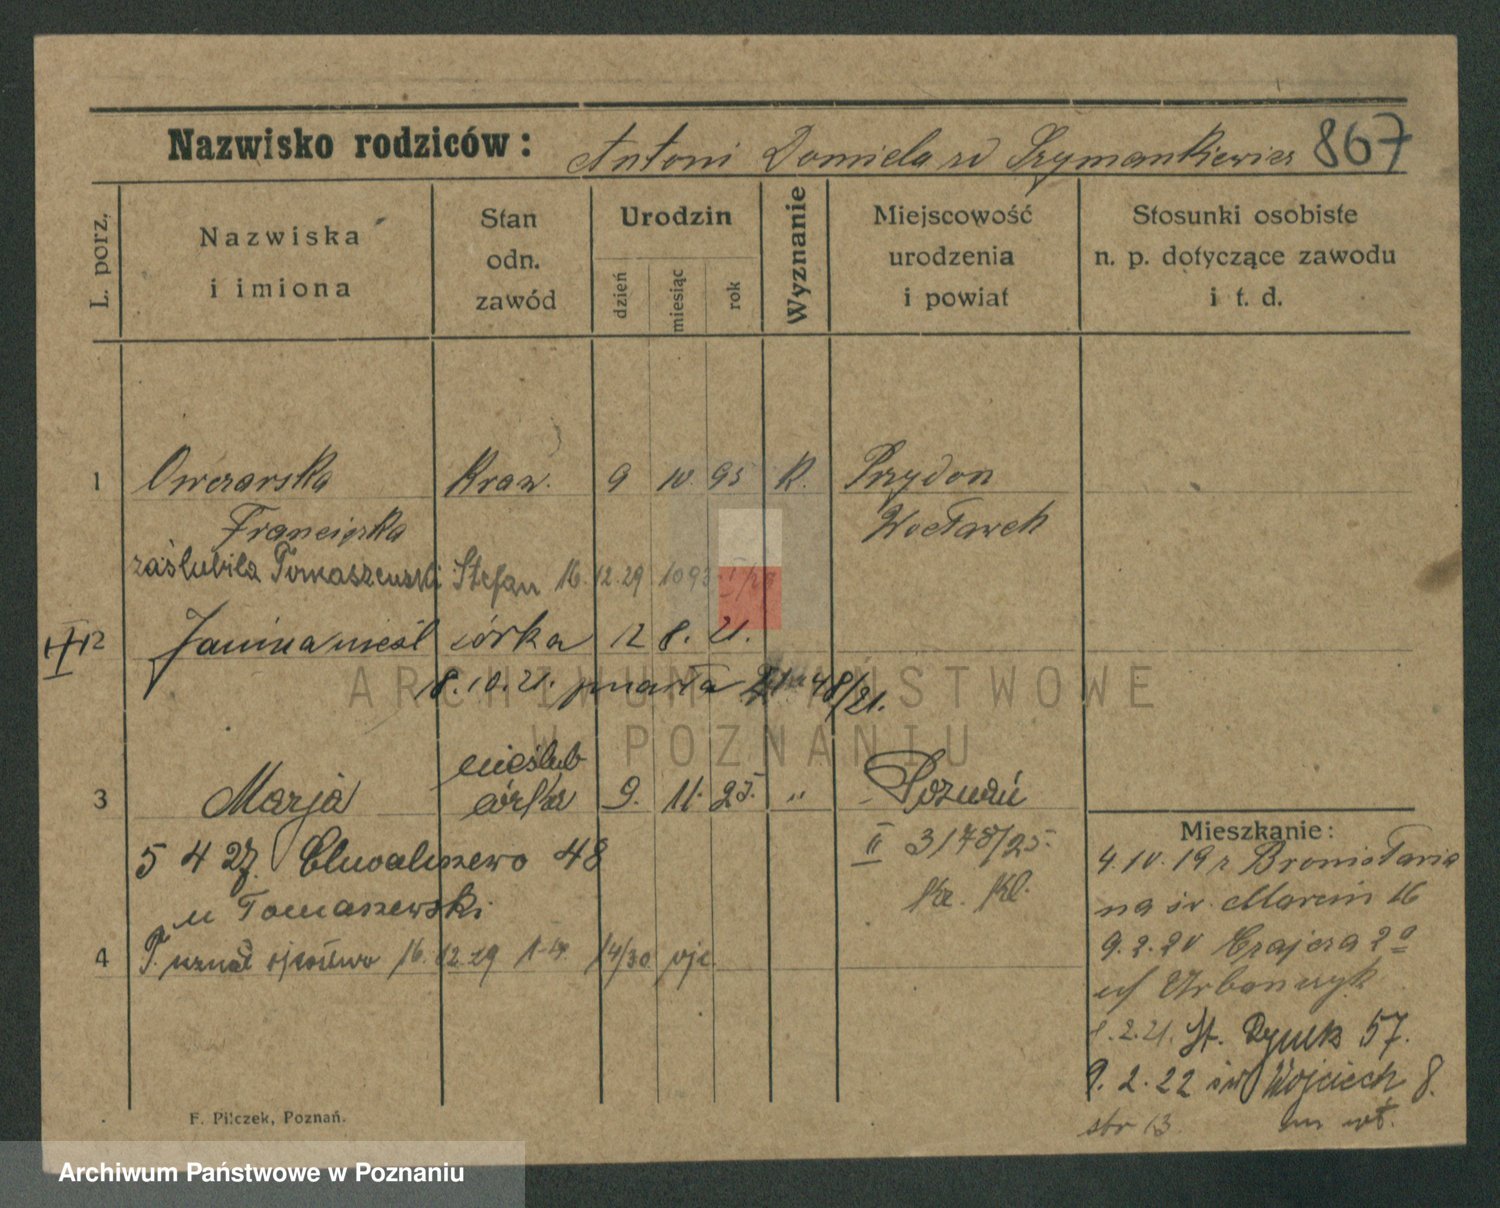 Nazwisko rodziców: Antoni Domicela zd Szymankiewicz 867
L. porz.
Nazwiska i imiona
Stan odn. zawód
Urodzin
dzień
miesiąc
rok
Wyznanie
Miejscowość urodzenia i powiat
Stosunki osobiste n. p. dotyczące zawodu i t. d.
1 Owczarska Kraw. 9 10 95 R. Przydon
Franciszka Wocławek
zaślubiła Tomaszewski Stefan 16.12.29 1093
2 Janina nieśl córka 12 8. 21.
8.10.21. zmarła 48/21.
nieślub
3 Marja córka 9. 11. 25. " Poznań
II 3178/25.
5 4 27. Chwaliszewo 48
u Tomaszewski
4 T. uznał ojcostwo 16.12.29 14/30
Mieszkanie:
4.10.19 r Bronisława
na św. Marcin 16
9.2.20 Czajcza 2a
u/ Urbańczyk
8.2.21. St. Rynek 57.
9.2.22 św Wojciech 8.
str 13
F. Pilczek, Poznań.
ARCHIWUM PAŃSTWOWE
W POZNANIU
Archiwum Państwowe w Poznaniu